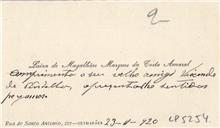 2-
Luiza de Magalhães Marques da Costa Amaral
Comprimenta o seu velho amigo Visconde
de Pindella, apresentalhe sentidos
pezames.
Rua de Santo Antonio, 127—Guimarães 23-8-920 CP5254